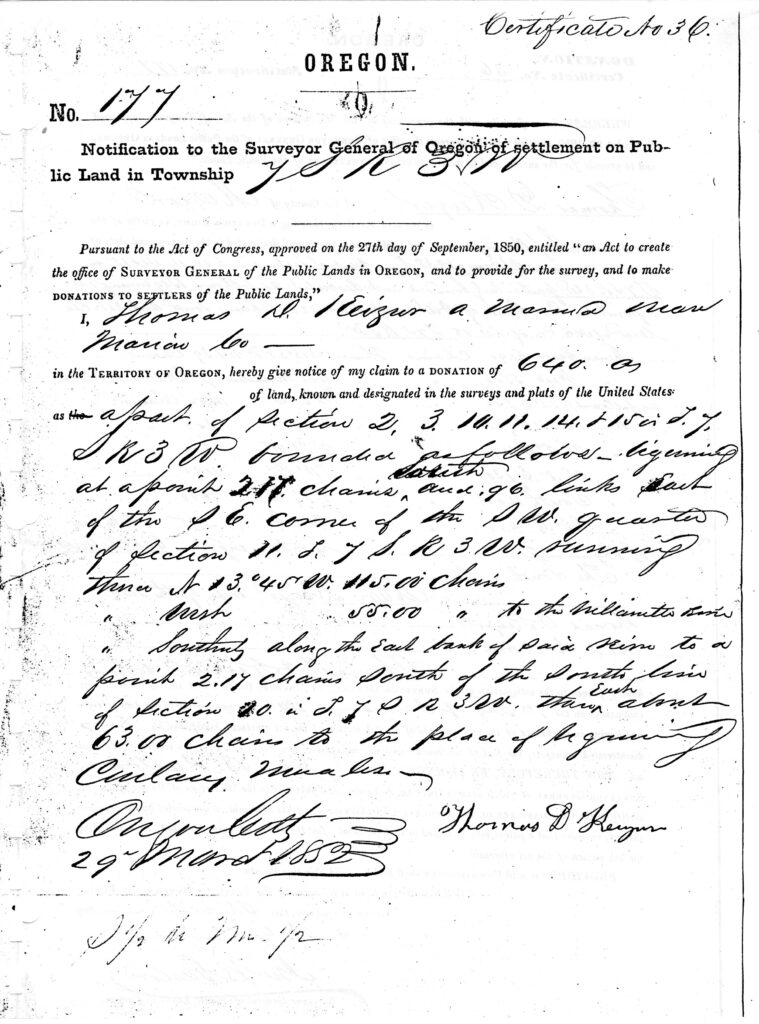 Certificate No 36.
OREGON.
No. 177
Notification to the Surveyor General of Oregon of settlement on Pub-
lic Land in Township 7 S R 3 W
Pursuant to the Act of Congress, approved on the 27th day of September, 1850, entitled "an Act to create
the office of SURVEYOR GENERAL of the Public Lands in OREGON, and to provide for the survey, and to make
DONATIONS TO SETTLERS of the Public Lands,"
I, Thomas D. Keizur a Married man
Marion Co —
in the TERRITORY OF OREGON, hereby give notice of my claim to a DONATION of 640. a
of land, known and designated in the surveys and plats of the United States:
as the a part of Section 2, 3. 10. 11. 14. & 15 in T. 7.
S R 3 W. bounded as follows — begining
at a point 2.17. chains South and 96. links East
of the S E. corner of the S W. quarter
of Section 11. T. 7 S. R 3 W. running
thence N 13.°45' W. 115.00 chains
" West 55.00 " to the Willamette River
" Southerly along the East bank of said River to a
point 2.17 chains South of the South line
of Section 10. in T. 7 S R 3 W. thence East about
63.00 chains to the place of begining
Oregon City
29 March 1852
Thomas D Keizur